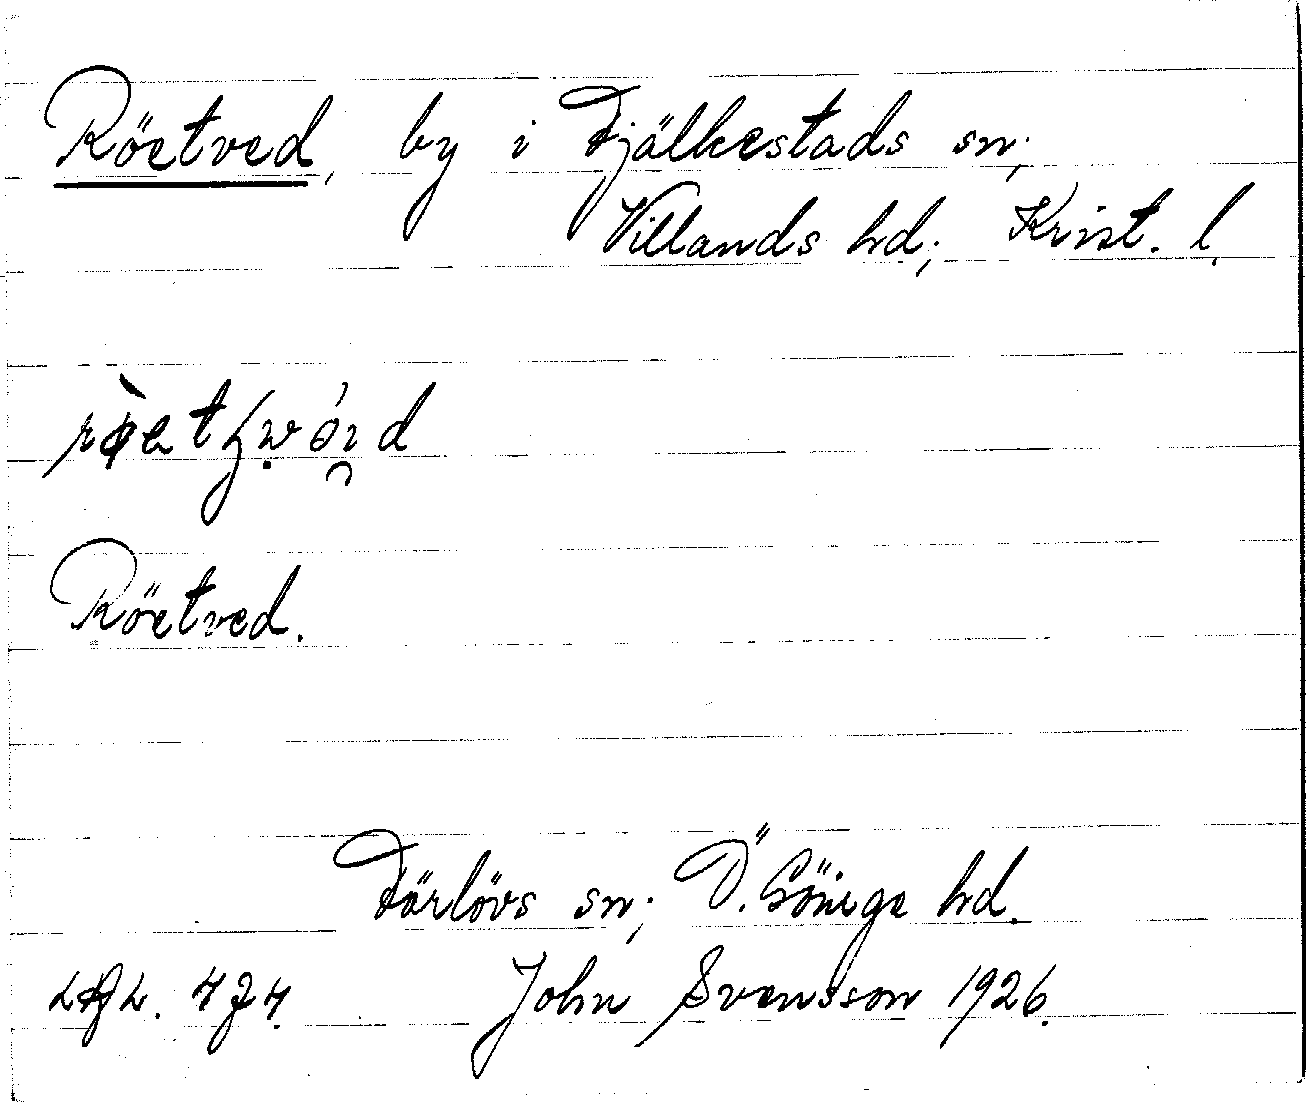 Röetved, by i Fjälkestads sn;
Villands hd; Krist. l.
Röetved.
Färlövs sn; Ö. Göinge hd.
John Svensson 1926.